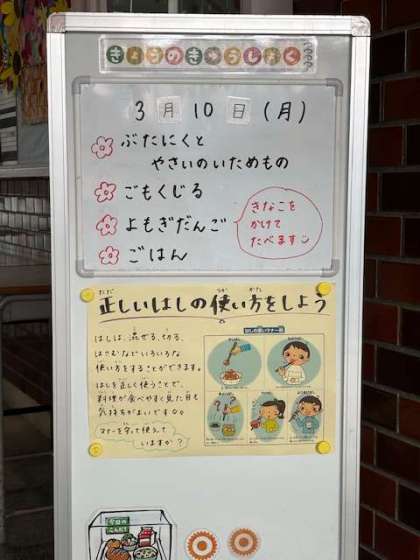 きょうのきゅうしょく
3月10日(月)
ぶたにくと
やさいのいためもの
ごもくじる
よもぎだんご
きなこを
かけて
たべます
ごはん
正しいはしの使い方をしよう
はしは、混ぜる、切る、
はさむなどいろいろな
使い方をすることができます。
はしを正しく使うことで、
料理が食べやすく見た目も
気持ちがよいです。
マナーを守って使えて
いますか?
今日の
こんだて